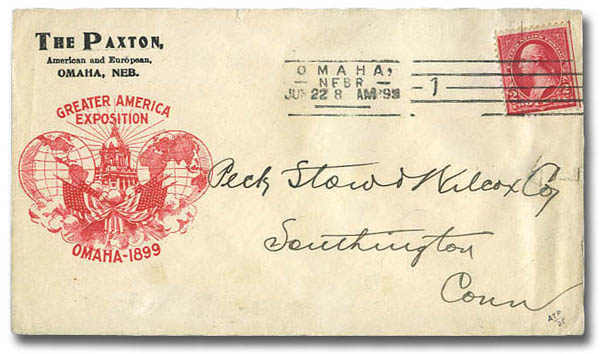 THE PAXTON,
American and European,
OMAHA, NEB.
GREATER AMERICA
EXPOSITION
OMAHA-1899
OMAHA,
NEBR
JUN 22 8 AM '99
1
Peck Stow & Wilcox Co
Southington
Conn